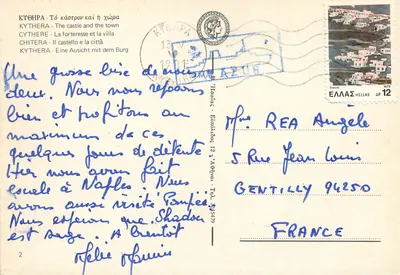 ΚΥΘΗΡΑ - Τό κάστρον καί ή χώρα
KYTHERA - The castle and the town
CYTHERE - La forteresse et la villa
CHITERA - Il castello e la città
KYTHERA - Eine Ausicht mit dem Burg
Une grosse bise de nous
deux. Nous nous reposons
bien et profitons au
maximum de ces
quelques jours de détente
Hier nous avons fait
escale à Naples. Nous
avons aussi visité Pompéi.
Nous espérons que Shadow
est sage. A bientôt
2
ΕΛΛΑΣ HELLAS ΔΡ 12
Mme REA Angèle
5 Rue Jean Louis
GENTILLY 94250
FRANCE